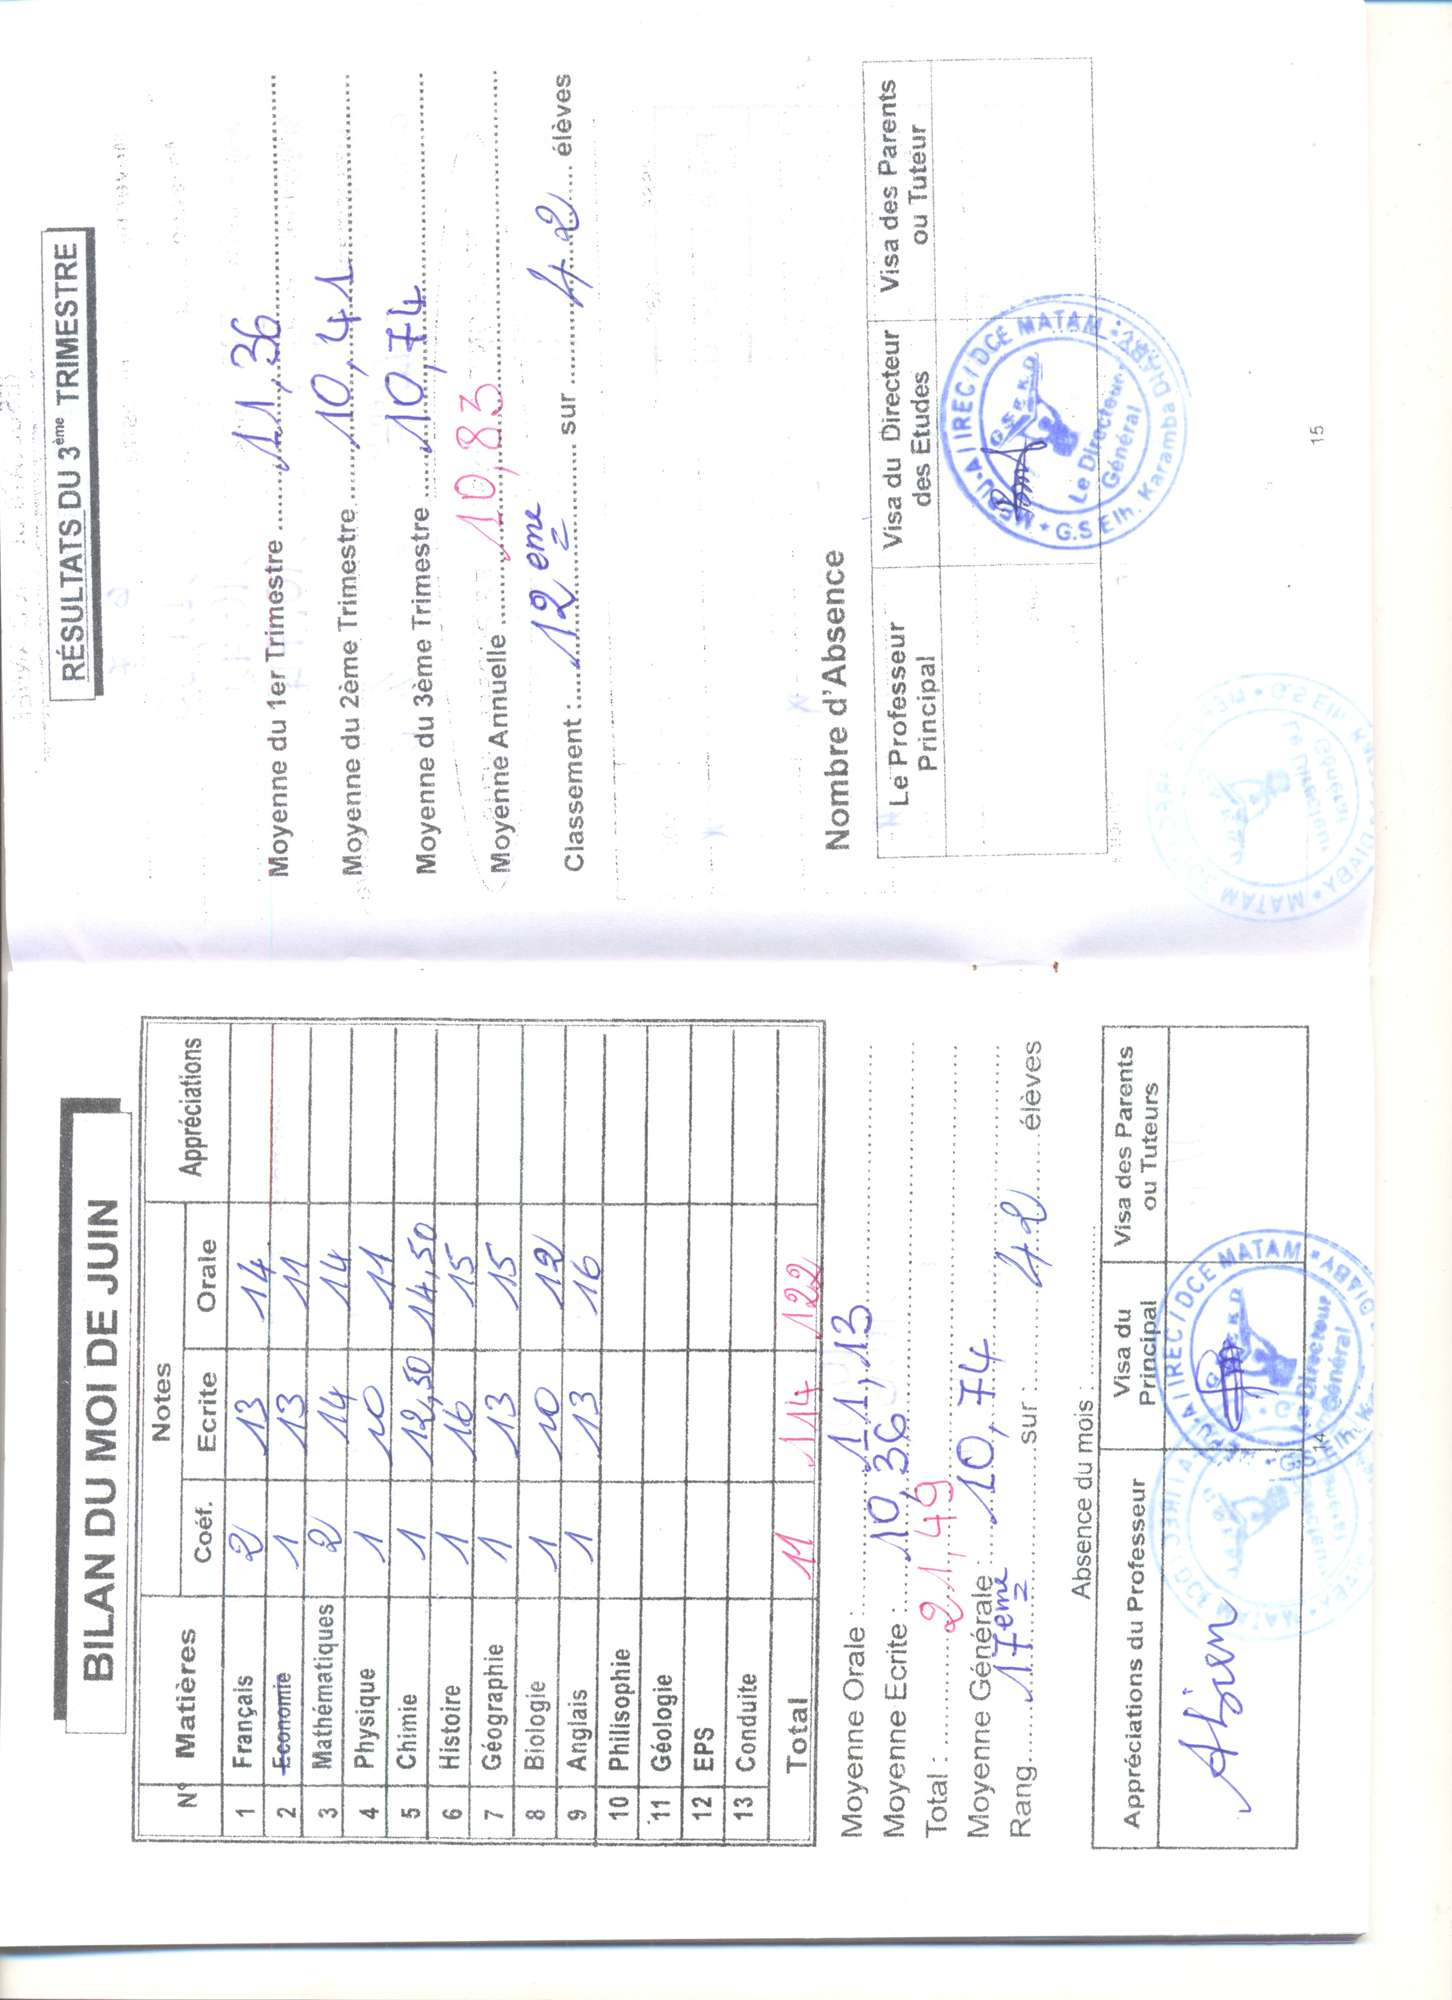 BILAN DU MOI DE JUIN
N° Matières Notes Appréciations
Coéf. Ecrite Orale
1 Français 2 13 14
2 Economie 1 13 11
3 Mathématiques 2 14 14
4 Physique 1 10 11
5 Chimie 1 12,50 14,50
6 Histoire 1 16 15
7 Géographie 1 13 15
8 Biologie 1 10 12
9 Anglais 1 13 16
10 Philisophie
11 Géologie
12 EPS
13 Conduite
Total 11 114 122
Moyenne Orale : 11,13
Moyenne Ecrite : 10,36
Total : 21,49
Moyenne Générale : 10,74
Rang 17eme sur : 42 élèves
Absence du mois :
Appréciations du Professeur Visa du Principal Visa des Parents ou Tuteurs
14
RÉSULTATS DU 3ème TRIMESTRE
Moyenne du 1er Trimestre 11,36
Moyenne du 2ème Trimestre 10,41
Moyenne du 3ème Trimestre 10,74
Moyenne Annuelle 10,83
Classement : 12eme sur 42 élèves
Nombre d'Absence
Le Professeur Principal Visa du Directeur des Etudes Visa des Parents ou Tuteur
IREC / DCE MATAM
G.S.E.K.D
Le Directeur Général
G.S Elh. Karamba DIABY
15